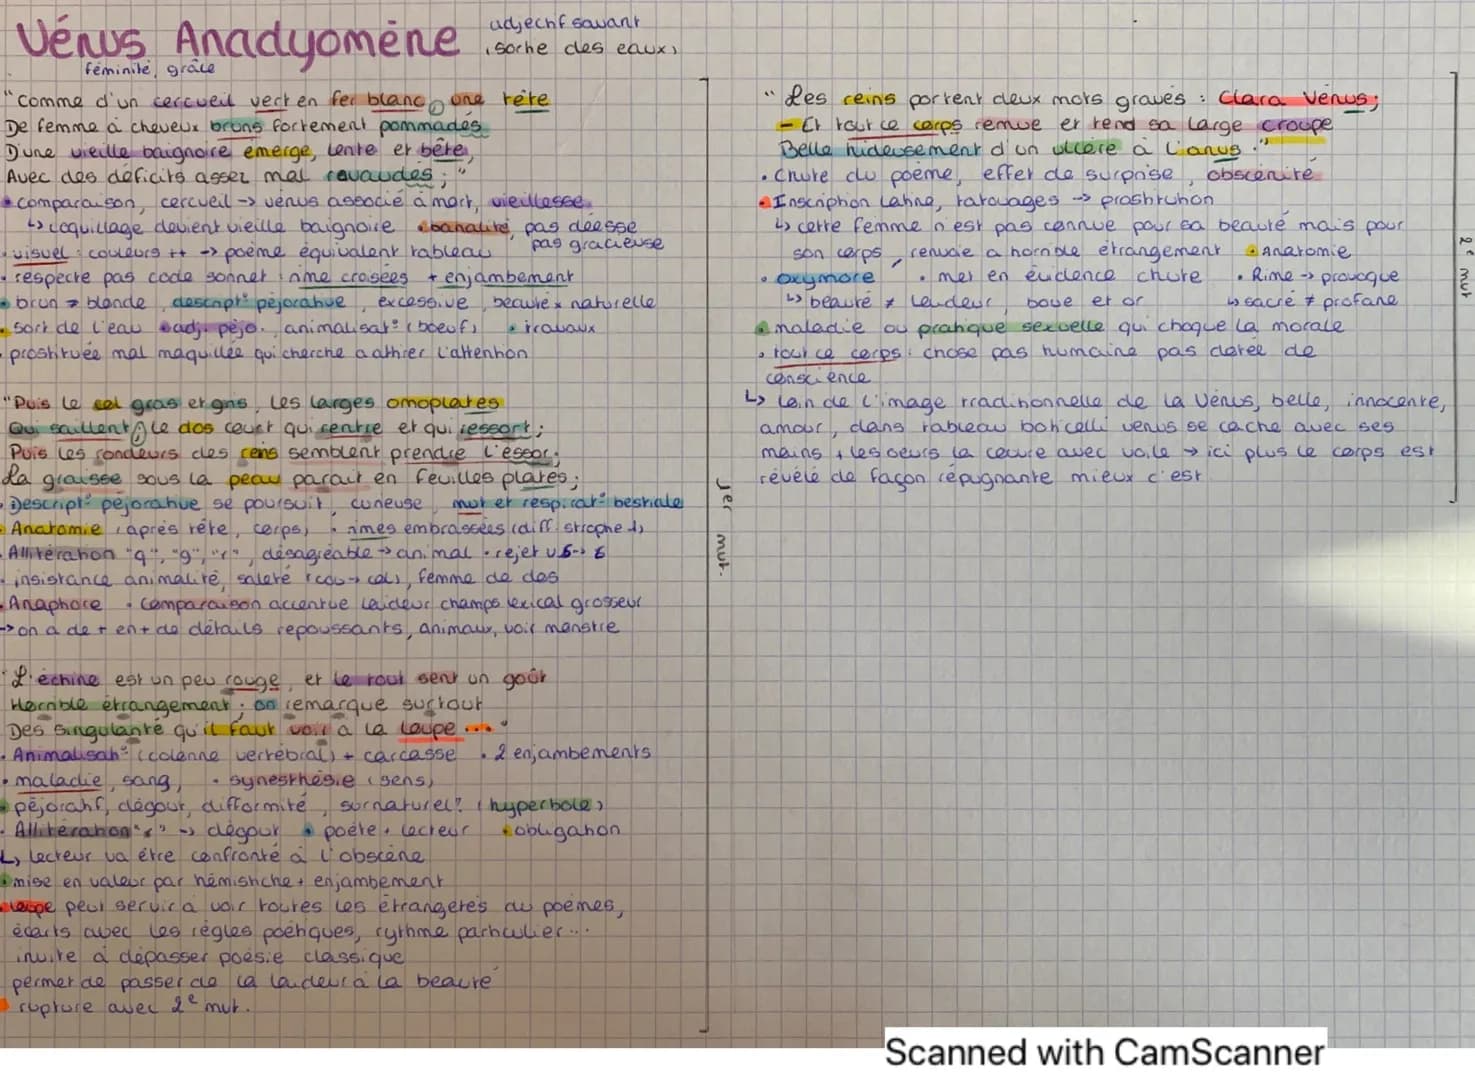 Vénus Anadyomène
adjectif savant
(sortie des eaux)
féminité, grâce
"Comme d'un cercueil vert en fer blanc, une tête
De femme à cheveux bruns fortement pommadés
D'une vieille baignoire émerge, lente et bête,
Avec des déficits assez mal ravaudés ; "
comparaison, cercueil -> vénus associé à mort, vieillesse
↳ coquillage devient vieille baignoire • banalité, pas déesse
pas gracieuse
• visuel : couleurs ++ -> poème équivalent tableau
• respecte pas code sonnet : rime croisées + enjambement
• brun ≠ blonde, descript° péjorative, excessive, beauté x naturelle
• sort de l'eau • adj. péjo., animalisat° (boeuf) • travaux
• prostituée mal maquillée qui cherche a attirer l'attention
"Puis le col gras et gris, les larges omoplates
Qui saillent ; le dos court qui rentre et qui ressort ;
Puis les rondeurs des reins semblent prendre l'essor ;
La graisse sous la peau parait en feuilles plates ;
• Descript° péjorative se poursuit, curieuse, mvt et respirat° bestiale
• Anatomie (après tête, corps) • rimes embrassées (diff. strophe 1)
• Allitération "q", "g", "r", désagréable -> animal • rejet v5-> 6
• insistance animalité, saleté (cou -> col), femme de dos
• Anaphore • comparaison accentue laideur champs lexical grosseur
-> on a de + en + de détails repoussants, animaux, voir monstre
"L'échine est un peu rouge, et le tout sent un goût
Horrible étrangement ; on remarque surtout
Des singularité qu'il faut voir à la loupe ..."
• Animalisat° (colonne vertébral) + carcasse • 2 enjambements
• maladie, sang, • synesthésie (sens)
• péjoratif, dégout, difformité, surnaturel? (hyperbole)
• Allitération "r" -> dégout • poète + lecteur • obligation
↳ lecteur va être confronté à l'obscène
• mise en valeur par hémistiche + enjambement
• loupe peut servir à voir toutes les étrangetés du poèmes,
écarts avec les règles poétiques, rythme particulier...
invite à dépasser poésie classique
permet de passer de la laideur à la beauté
• rupture avec 2e mvt.
1er mvt.
" Les reins portent deux mots gravés : Clara Vénus ;
- Et tout ce corps remue et tend sa large croupe
Belle hideusement d'un ulcère à l'anus ."
• Chute du poème, effet de surprise, obscénité
• Inscription latine, tatouages -> prostitution
↳ cette femme n'est pas connue pour sa beauté mais pour
son corps, renvoie a horrible étrangement • Anatomie
• oxymore • met en évidence chute • Rime -> provoque
↳ beauté ≠ laideur, boue et or ↳ sacré ≠ profane
• maladie ou pratique sexuelle qui choque la morale
• tout ce corps : chose pas humaine pas dotée de
conscience
↳ loin de l'image traditionnelle de la Vénus, belle, innocente,
amour, dans tableau boticelli venus se cache avec ses
mains + les oeurs la couvre avec voile -> ici plus le corps est
révélé de façon répugnante mieux c'est
2e mvt
Scanned with CamScanner